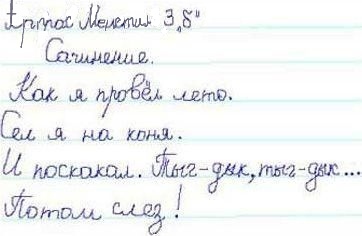 Артос Менетил 3 „Б"
Сочинение.
Как я провёл лето.
Сел я на коня.
И поскакал. Тыг-дык, тыг-дык...
Потом слез!